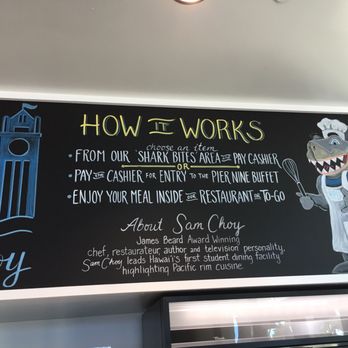 HOW IT WORKS
choose an item
• FROM OUR "SHARK BITES" AREA AND PAY CASHIER
OR
• PAY THE CASHIER FOR ENTRY TO THE PIER NINE BUFFET
• ENJOY YOUR MEAL INSIDE OUR RESTAURANT OR TO-GO
About Sam Choy
James Beard Award Winning
chef, restaurateur, author and television personality,
Sam Choy leads Hawaii's first student dining facility
highlighting Pacific rim cuisine
oy